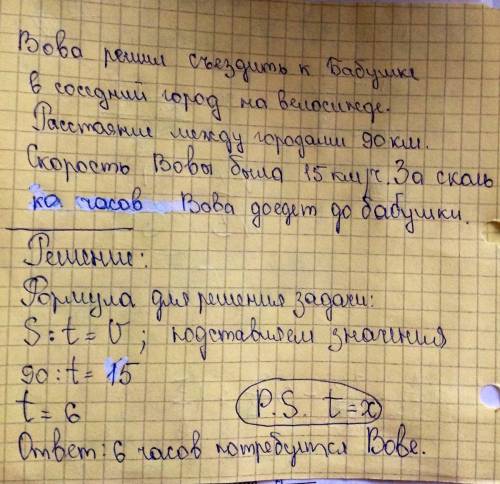 Вова решил съездить к Бабушке
в соседний город на велосипеде.
Расстояние между городами 90 км.
Скорость Вовы была 15 км/ч. За сколь
ка часов Вова доедет до бабушки.
Решение:
Формула для решения задачи:
S : t = V ; подставляем значения
90 : t = 15
t = 6
P.S. t = x
Ответ: 6 часов потребуется Вове.